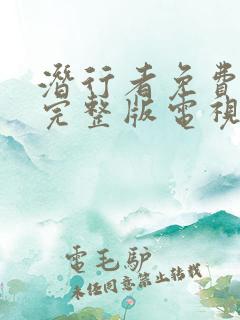 潛行者免費
完整版電視
電毛驴
未经同意禁止转载